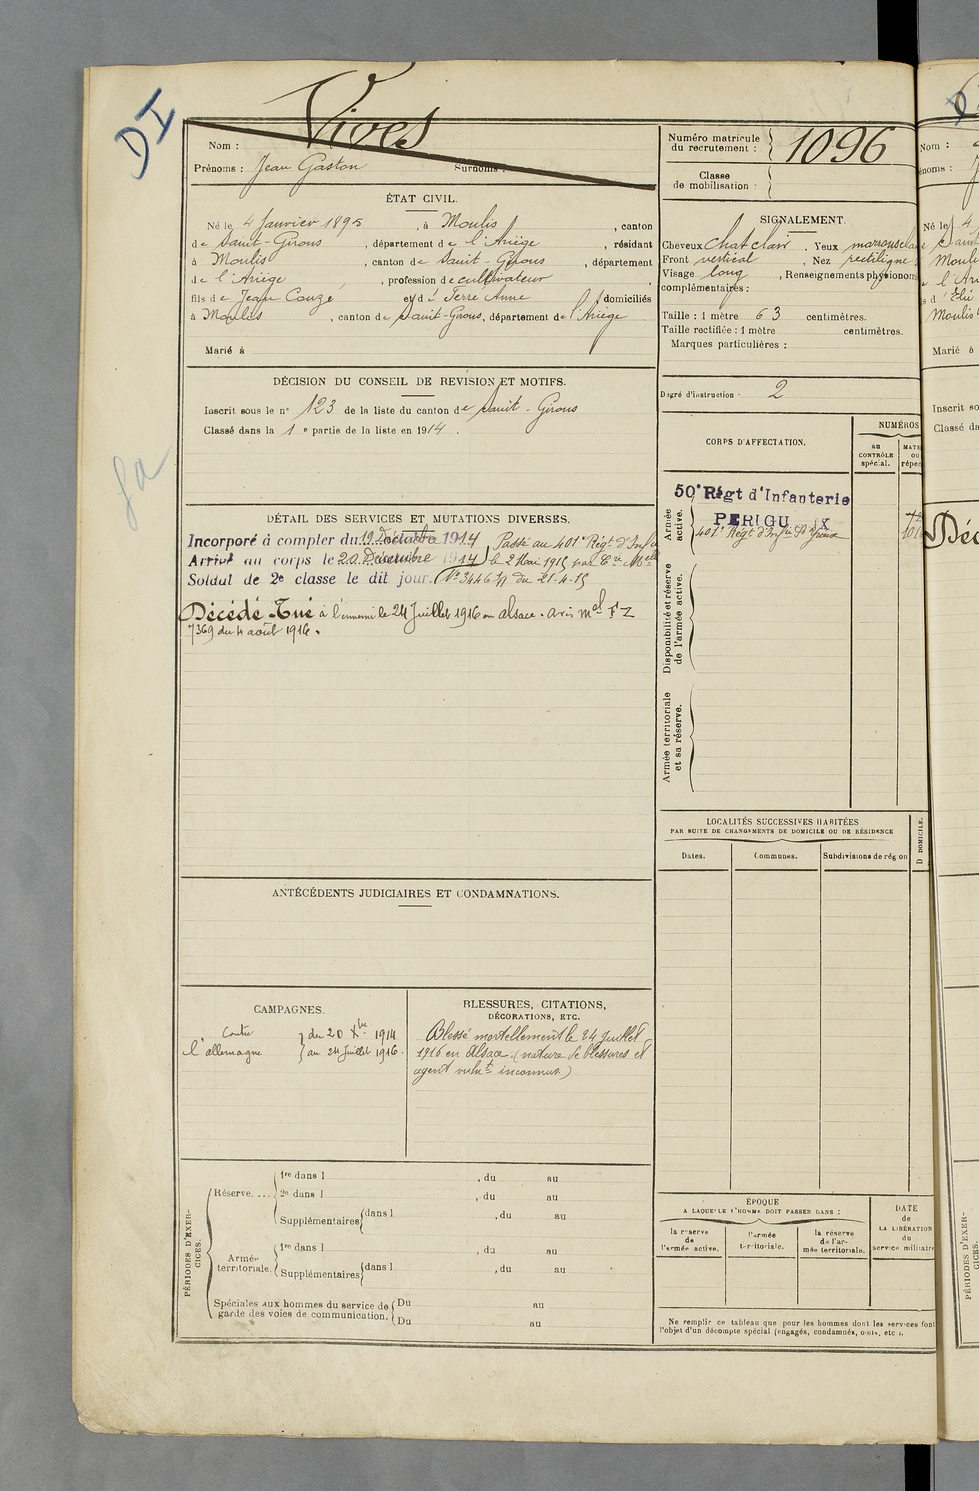 DI
Vives
Nom :
Prénoms : Jean Gaston Surnoms :
Numéro matricule du recrutement : 1096
Classe de mobilisation :
ÉTAT CIVIL.
Né le 4 Janvier 1895, à Moulis, canton
de Saint-Girons, département de l'Ariège, résidant
à Moulis, canton de Saint-Girons, département
de l'Ariège, profession de cultivateur,
fils de Jean Couzé et d' Terre Anne domiciliés
à Moulis, canton de Saint-Girons, département de l'Ariège
Marié à
SIGNALEMENT.
Cheveux chat clair, Yeux marrons clai
Front vertical, Nez rectiligne
Visage long, Renseignements physionom
complémentaires :
Taille : 1 mètre 63 centimètres.
Taille rectifiée : 1 mètre centimètres.
Marques particulières :
Degré d'instruction : 2
DÉCISION DU CONSEIL DE REVISION ET MOTIFS.
Inscrit sous le n° 123 de la liste du canton de Saint-Girons
Classé dans la 1e partie de la liste en 1914.
CORPS D'AFFECTATION.
NUMÉROS
au CONTRÔLE spécial.
MATR
ou
réper
Armée active.
50e Régt d'Infanterie
PERIGU X
401e Régt d'Inf
Disponibilité et réserve de l'armée active.
Armée territoriale et sa réserve.
DÉTAIL DES SERVICES ET MUTATIONS DIVERSES.
Incorporé à compter du 19 Décembre 1914
Arrivé au corps le 20 Décembre 1914
Soldat de 2e classe le dit jour.
Passé au 401e Régt d'Inf
le 2 Mai 1915 par Cre Mlle
No 3446 du 21-4-15
Décédé Tué à l'ennemi le 24 Juillet 1916 en alsace. avis mel FZ
7369 du 4 août 1916.
LOCALITÉS SUCCESSIVES HABITÉES
PAR SUITE DE CHANGEMENTS DE DOMICILE OU DE RÉSIDENCE
Dates.
Communes.
Subdivisions de région
D DOMICILE.
ANTÉCÉDENTS JUDICIAIRES ET CONDAMNATIONS.
CAMPAGNES.
Contre l'allemagne
du 20 Xbre 1914
au 24 Juillet 1916.
BLESSURES, CITATIONS,
DÉCORATIONS, ETC.
Blessé mortellement le 24 Juillet
1916 en Alsace. (nature de blessures et
agent vulnt inconnus.)
PÉRIODES D'EXERCICES.
Réserve....
1re dans l , du au
2e dans l , du au
Supplémentaires dans l , du au
Armée territoriale.
1re dans l , du au
Supplémentaires dans l , du au
Spéciales aux hommes du service de garde des voies de communication.
Du au
Du au
ÉPOQUE
A LAQUELLE L'HOMME DOIT PASSER DANS :
la réserve de l'armée active.
l'armée territoriale.
la réserve de l'armée territoriale.
DATE
de
LA LIBÉRATION
du
service militaire
Ne remplir ce tableau que pour les hommes dont les services font
l'objet d'un décompte spécial (engagés, condamnés, omis, etc ).
Nom :
Né le 4
Marié à
Inscrit so
Classé da
Déc
PÉRIODES D'EXER-
CICES.